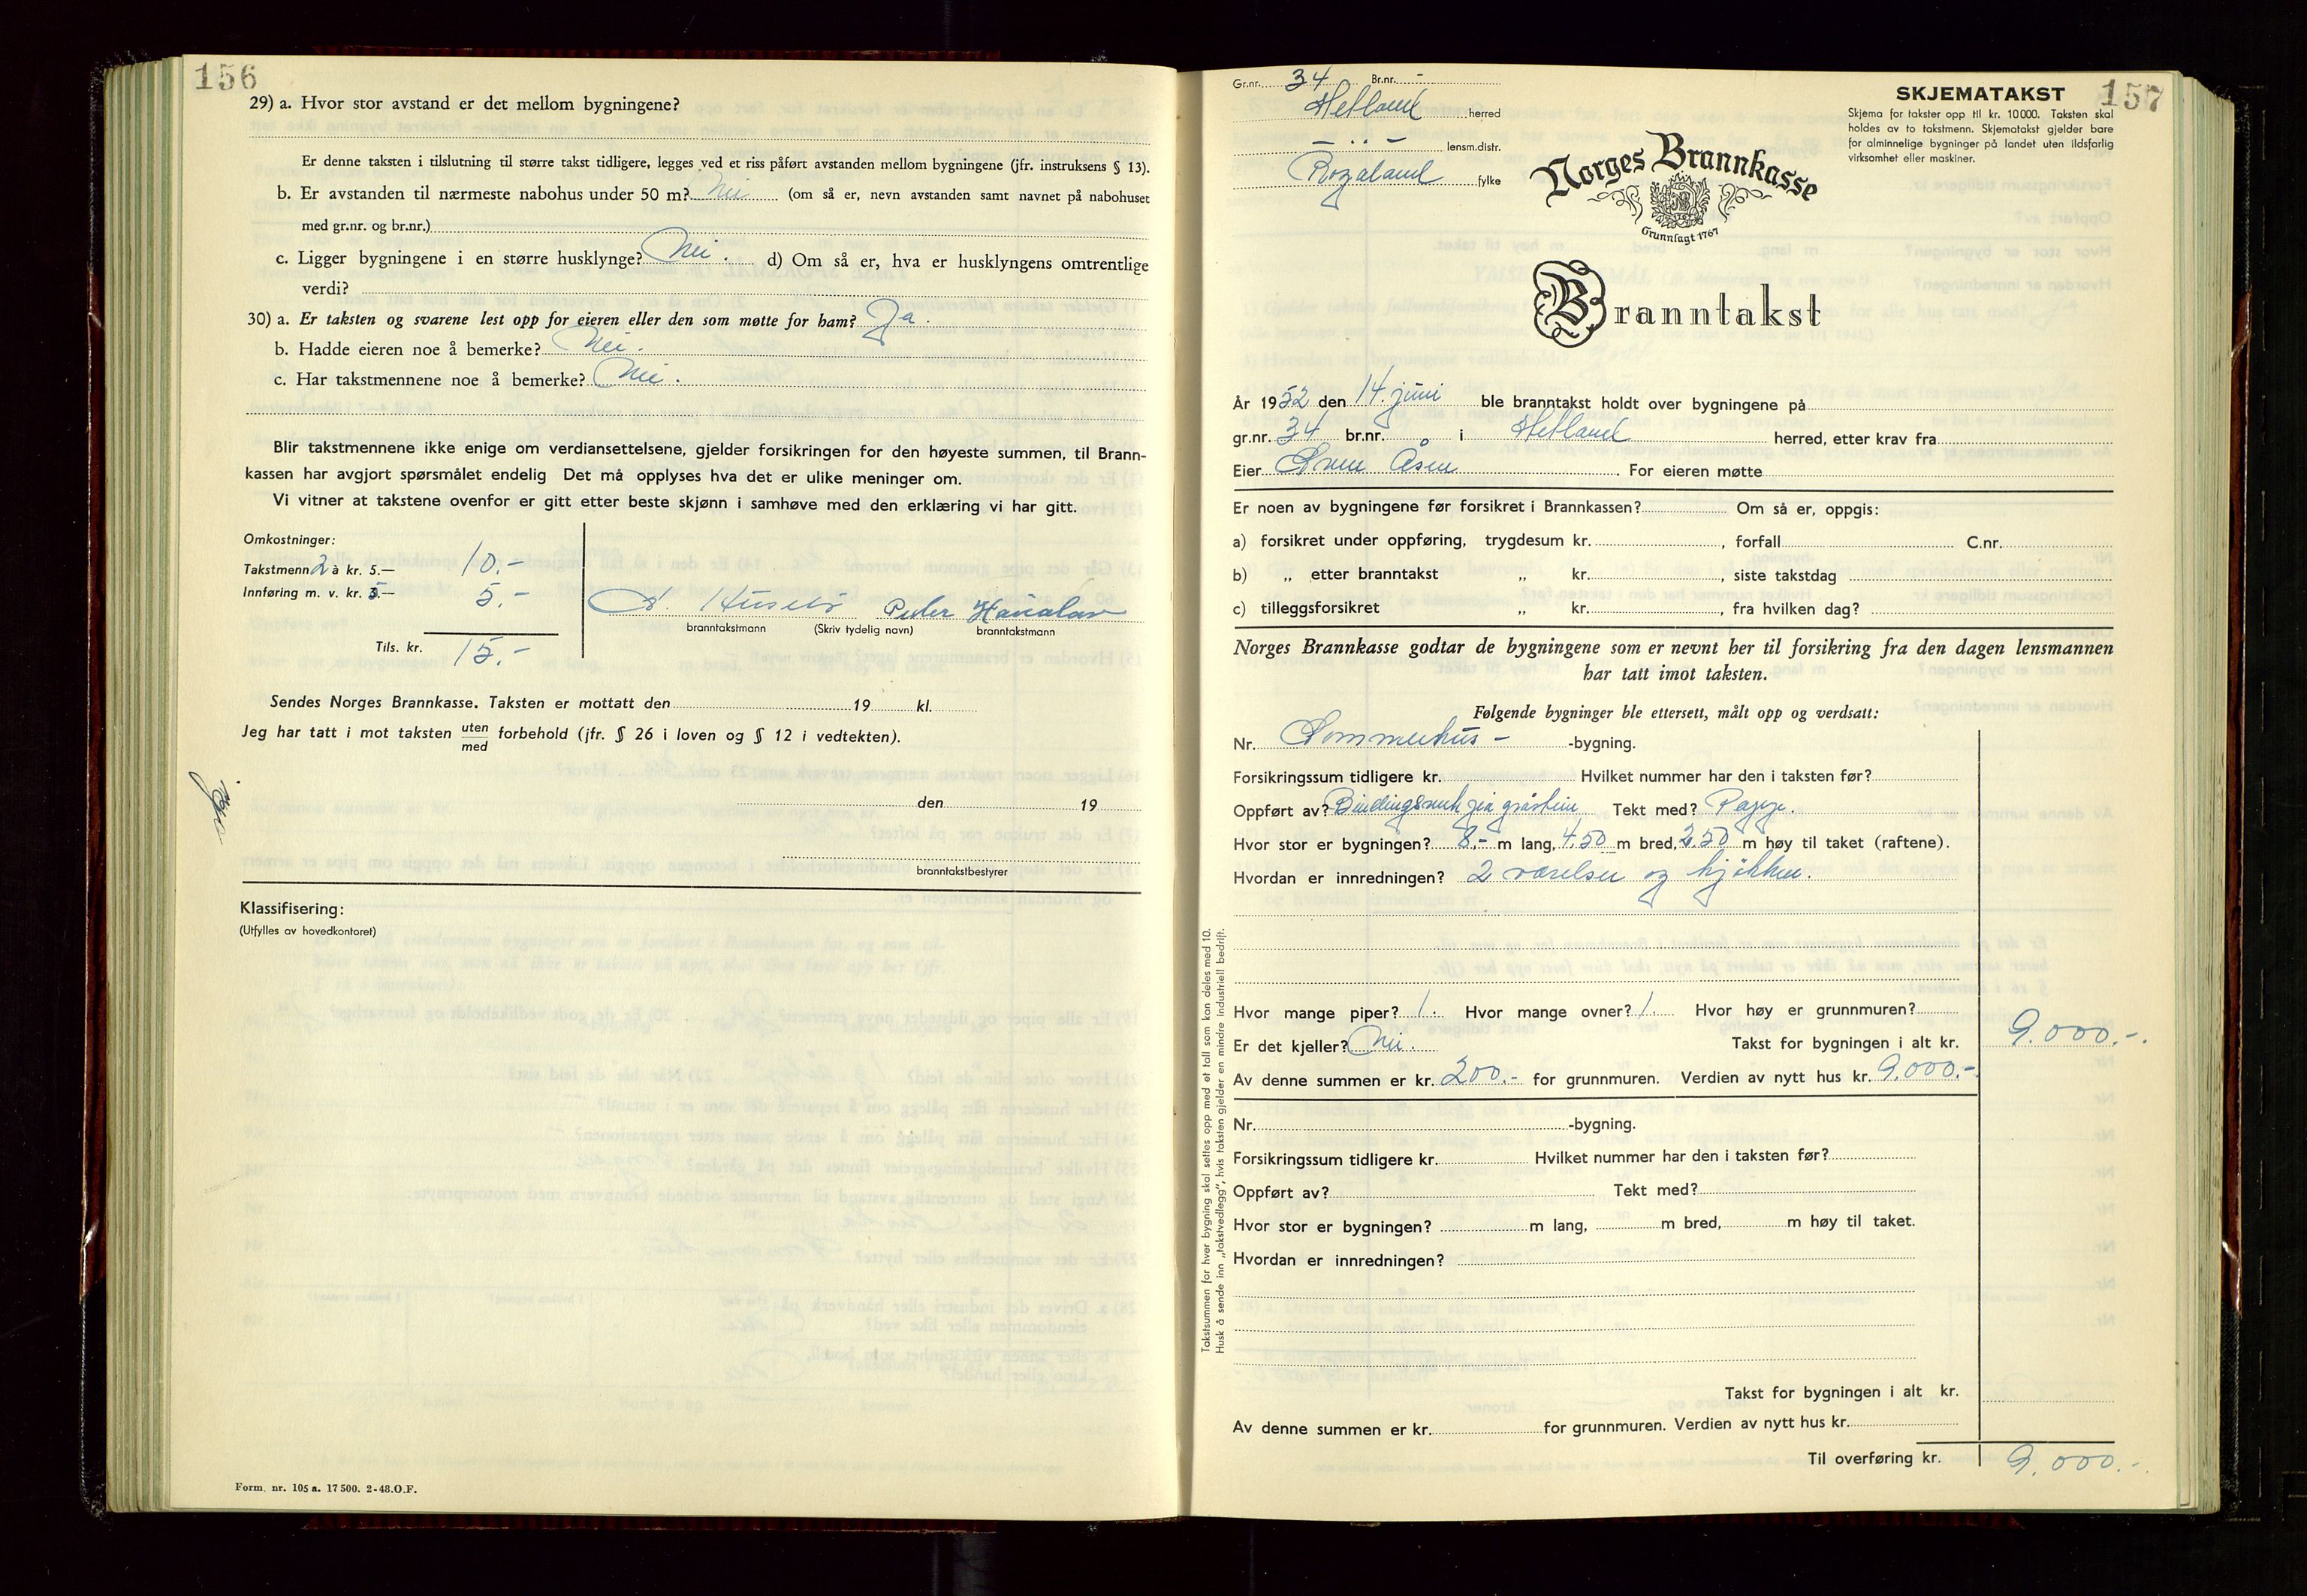 156
29) a. Hvor stor avstand er det mellom bygningene?
Er denne taksten i tilslutning til større takst tidligere, legges ved et riss påført avstanden mellom bygningene (jfr. instruksens § 13).
b. Er avstanden til nærmeste nabohus under 50 m? Nei (om så er, nevn avstanden samt navnet på nabohuset
med gr.nr. og br.nr.)
c. Ligger bygningene i en større husklynge? Nei. d) Om så er, hva er husklyngens omtrentlige
verdi?
30) a. Er taksten og svarene lest opp for eieren eller den som møtte for ham? Ja.
b. Hadde eieren noe å bemerke? Nei.
c. Har takstmennene noe å bemerke? Nei.
Blir takstmennene ikke enige om verdiansettelsene, gjelder forsikringen for den høyeste summen, til Brann-
kassen har avgjort spørsmålet endelig Det må opplyses hva det er ulike meninger om.
Vi vitner at takstene ovenfor er gitt etter beste skjønn i samhøve med den erklæring vi har gitt.
Omkostninger:
Takstmenn 2 à kr. 5.— 10.-
Innføring m. v. kr. 5.— 5.-
Husebø Peder
branntakstmann (Skriv tydelig navn) branntakstmann
Tils. kr. 15.-
Sendes Norges Brannkasse. Taksten er mottatt den 19 kl.
Jeg har tatt i mot taksten uten/med forbehold (jfr. § 26 i loven og § 12 i vedtekten).
den 19
branntakstbestyrer
Klassifisering:
(Utfylles av hovedkontoret)
Form. nr. 105 a. 17 500. 2-48. O.F.
157
Gr.nr. 34 Br.nr. -
Hetland herred
— „ — lensm.distr.
Rogaland fylke
SKJEMATAKST
Skjema for takster opp til kr. 10 000. Taksten skal
holdes av to takstmenn. Skjematakst gjelder bare
for alminnelige bygninger på landet uten ildsfarlig
virksomhet eller maskiner.
Norges Brannkasse
Grunnlagt 1767
Branntakst
År 1952 den 14. juni ble branntakst holdt over bygningene på
gr.nr. 34 br.nr. i Hetland herred, etter krav fra
Eier Sven Åsen. For eieren møtte
Er noen av bygningene før forsikret i Brannkassen? Om så er, oppgis:
a) forsikret under oppføring, trygdesum kr. , forfall C.nr.
b) „ etter branntakst „ kr. , siste takstdag
c) tilleggsforsikret „ kr. , fra hvilken dag?
Norges Brannkasse godtar de bygningene som er nevnt her til forsikring fra den dagen lensmannen
har tatt imot taksten.
Følgende bygninger ble ettersett, målt opp og verdsatt:
Nr. Sommerhus - -bygning.
Forsikringssum tidligere kr. Hvilket nummer har den i taksten før?
Oppført av? Bindingsverk gråstein Tekt med? Papp.
Hvor stor er bygningen? 8.- m lang, 4,50 m bred, 2,50 m høy til taket (raftene).
Hvordan er innredningen? 2 værelser og kjøkken.
Hvor mange piper? 1. Hvor mange ovner? 1. Hvor høy er grunnmuren?
Er det kjeller? Nei. Takst for bygningen i alt kr. 9.000.-
Av denne summen er kr. 200.- for grunnmuren. Verdien av nytt hus kr. 9.000.-
Nr. -bygning.
Forsikringssum tidligere kr. Hvilket nummer har den i taksten før?
Oppført av? Tekt med?
Hvor stor er bygningen? m lang, m bred, m høy til taket.
Hvordan er innredningen?
Takst for bygningen i alt kr.
Av denne summen er kr. for grunnmuren. Verdien av nytt hus kr.
Til overføring kr. 9.000.-
Takstsummen for hver bygning skal settes opp med et tall som kan deles med 10.
Husk å sende inn „takstvedlegg", hvis taksten gjelder en mindre industriell bedrift.